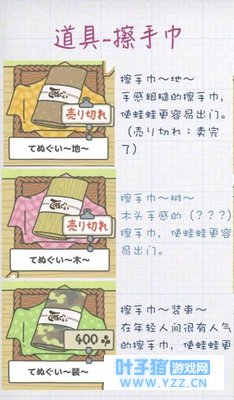 道具-擦手巾
擦手巾~地~
手感粗糙的擦手巾,
使蛙蛙更容易出门。
(売り切れ:卖完
了)
売り切れ
てぬぐい~地~
擦手巾~树~
木头手感的(???)
擦手巾,使蛙蛙更容
易出门。
売り切れ
てぬぐい~木~
擦手巾~装束~
在年轻人间很有人气
的擦手巾,使蛙蛙更
400
てぬぐい~装~
叶子猪游戏网
WWW.YZZ.CN